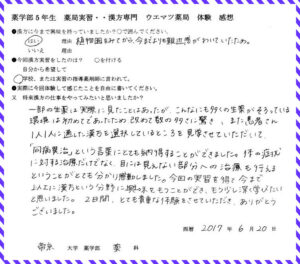 薬学部5年生 薬局実習・・漢方専門 ウエマツ薬局 体験 感想
●漢方に今まで興味を持っていましたか?○で囲んでください。
はい 理由 植物園をめぐり、今よりも親近感がわいていたため。
いいえ 理由
●今回漢方実習をしたのは? ○を付ける
自分から希望して
学校、または実習の指導薬剤師に言われて。
●実際に今回体験して感じたことを自由に書いてください。
又 将来漢方の仕事をやってみたいと思いましたか?
一部の生薬は実際に見たことはあったが、こんなにも多くの生薬がそろっている
環境は初めてであったため 改めて数の多さに驚き、また、患者さん
1人1人に適した漢方を選択しているところを見学させていただいて、
「同病異治」という言葉にとても納得することができました。体の症状
に対する治療だけでなく、目には見えない部分への治療も行える
ということがとても分かり感動しました。今回の実習を経て今まで
以上に漢方という分野に興味をもつことができ、もう少し深く学びたい
と思いました。2日間、とても貴重な体験をさせていただき、ありがとう
ございました。
西暦 2017 年 6 月 20 日
帝京 大学 薬学部 薬 科